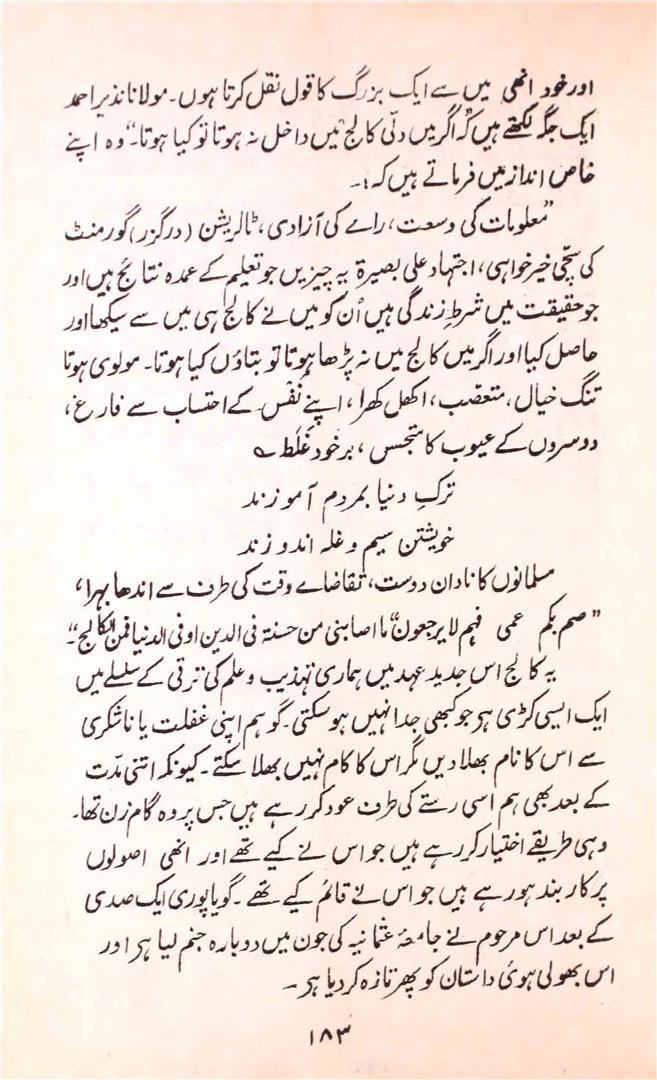 اور خود انھی میں سے ایک بزرگ کا قول نقل کرتا ہوں۔ مولانا نذیر احمد
ایک جگہ لکھتے ہیں کہ "اگر میں دلّی کالج میں داخل نہ ہوتا تو کیا ہوتا۔" وہ اپنے
خاص انداز میں فرماتے ہیں کہ:۔
"معلومات کی وسعت، راے کی آزادی، ٹالریشن (درگزر) گورمنٹ
کی سچّی خیر خواہی، اجتہاد علی بصیرة یہ چیزیں جو تعلیم کے عمدہ نتائج ہیں اور
جو حقیقت میں شرطِ زندگی ہیں اُن کو میں نے کالج ہی میں سے سیکھا اور
حاصل کیا اور اگر میں کالج میں نہ پڑھا ہوتا تو بتاؤں کیا ہوتا۔ مولوی ہوتا
تنگ خیال، متعصب، اکھل کھرا، اپنے نفس کے احتساب سے فارغ،
دوسروں کے عیوب کا متجسس، برخود غلط ؎
ترکِ دنیا بمردم آموزند
خویشتن سیم و غلہ اندوزند
مسلمانوں کا نادان دوست، تقاضاے وقت کی طرف سے اندھا بہرا،
"صم بکم عمی فہم لا یرجعون" ما اصابنی من حسنة فی الدین او فی الدنیا فمن الکالج"۔
یہ کالج اس جدید عہد میں ہماری تہذیب و علم کی ترقی کے سلسلے میں
ایک ایسی کڑی ہی جو کبھی جدا نہیں ہو سکتی۔ گو ہم اپنی غفلت یا ناشکری
سے اس کا نام بھلا دیں مگر اس کا کام نہیں بھلا سکتے۔ کیونکہ اتنی مدّت
کے بعد بھی ہم اسی رستے کی طرف عود کر رہے ہیں جس پر وہ گام زن تھا۔
وہی طریقے اختیار کر رہے ہیں جو اس نے کیے تھے اور انھی اصولوں
پر کاربند ہو رہے ہیں جو اس نے قائم کیے تھے۔ گویا پوری ایک صدی
کے بعد اس مرحوم نے جامعۂ عثمانیہ کی جون میں دوبارہ جنم لیا ہی اور
اس بھولی ہوئی داستان کو پھر تازہ کر دیا ہی ۔
۱۸۳